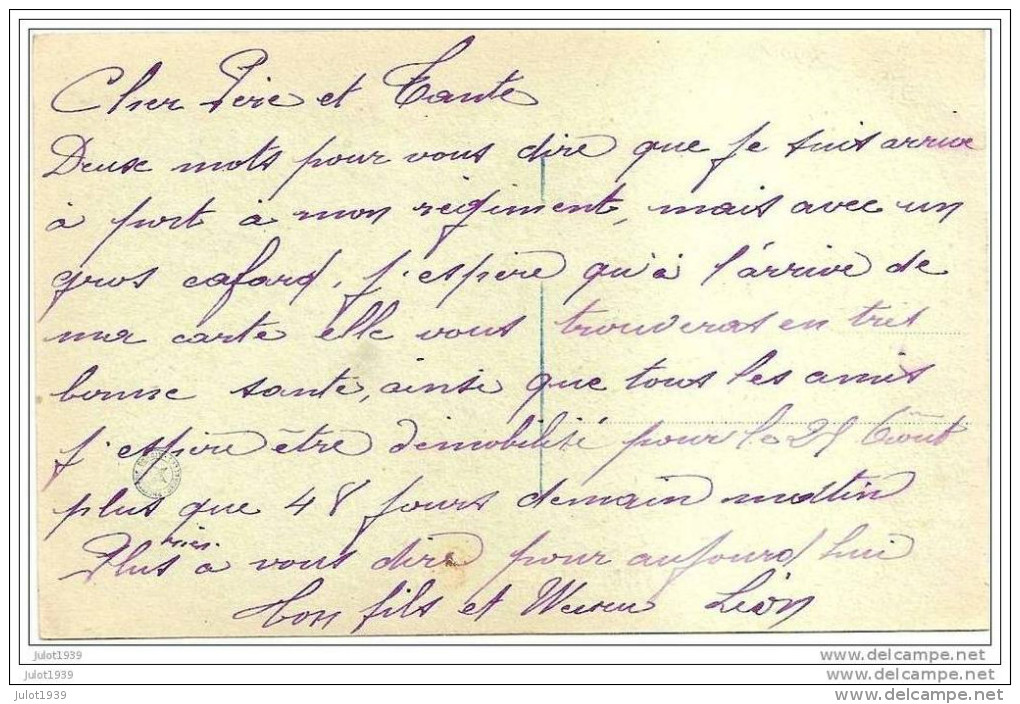 Cher Père et Tante
Deux mots pour vous dire que je suis arrive
à port à mon régiment, mais avec un
gros cafard, j'espère qu'à l'arrive de
ma carte elle vous trouveras en très
bonne santé, ainsi que tous les amis
j'espère être demobilisé pour le Août
plus que 48 jours demain matin
rien
Plus à vous dire pour aujourd hui
Ton fils et Neveu Léon
julot1939
julot1939
julot1939
www.delcampe.net
www.delcampe.net
www.delcampe.net